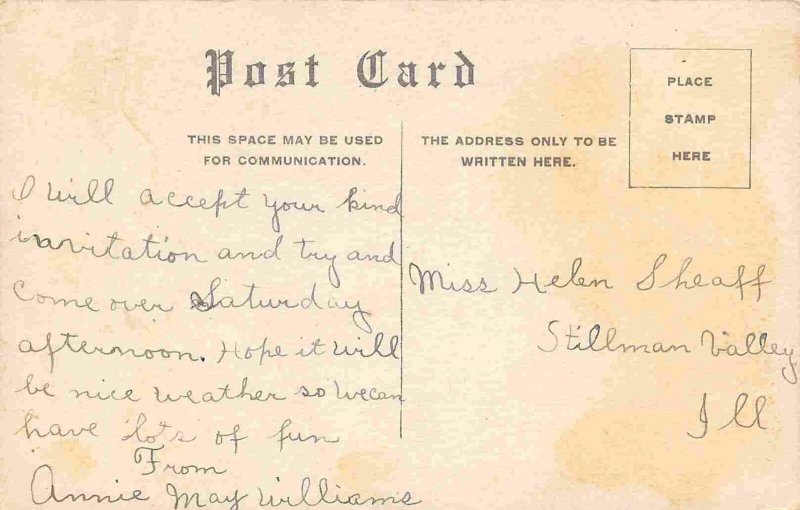 Post Card
PLACE
STAMP
HERE
THIS SPACE MAY BE USED
FOR COMMUNICATION.
THE ADDRESS ONLY TO BE
WRITTEN HERE.
I will accept your kind
invitation and try and
come over Saturday
afternoon. Hope it will
be nice weather so we can
have lots of fun
From
Annie May Williams
Miss Helen Sheaff
Stillman Valley
Ill